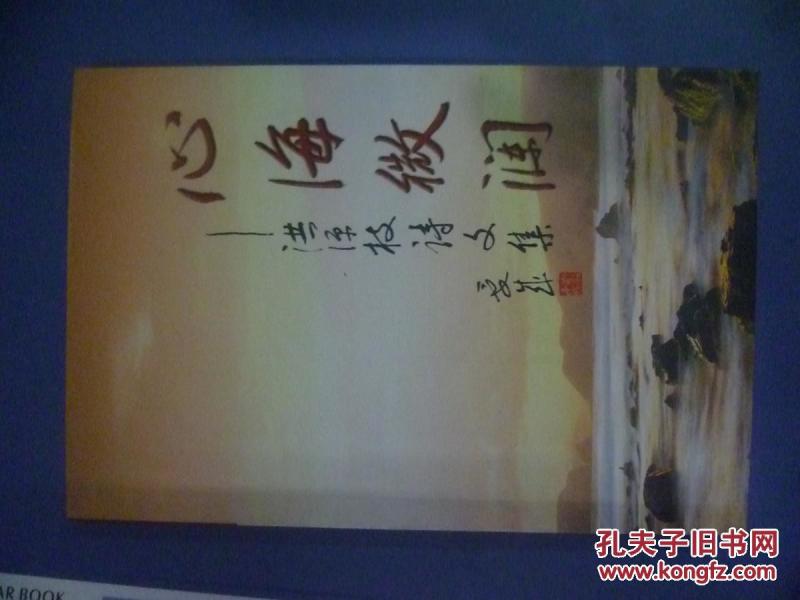 心海微澜
洪源枝诗文集
孔夫子旧书网
www.kongfz.com
AR BOOK